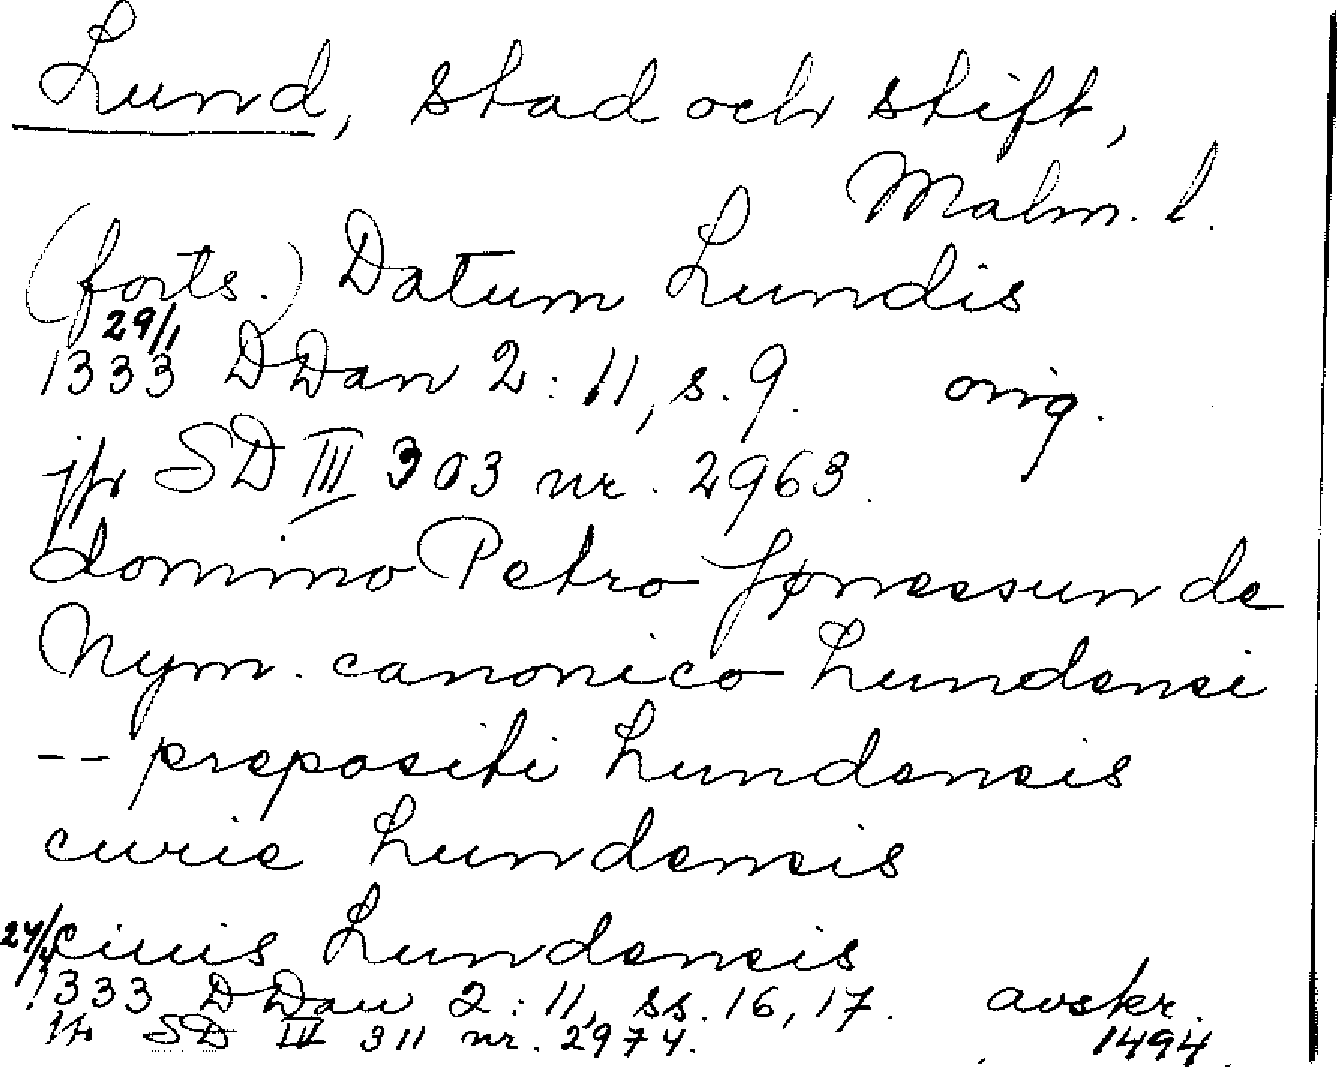 Lund, stad och stift,
Malm. l.
(forts.) Datum Lundis
29/1
1333 DDan 2:11, s. 9. orig.
jfr SD III 303 nr. 2963.
domino Petro Jønessun de
Nym. canonico Lundensi
-- prepositi Lundensis
curie Lundensis
ciuis Lundensis
1333 DDan 2:11, ss. 16, 17. avskr.
jfr SD III 311 nr. 2974. 1494.